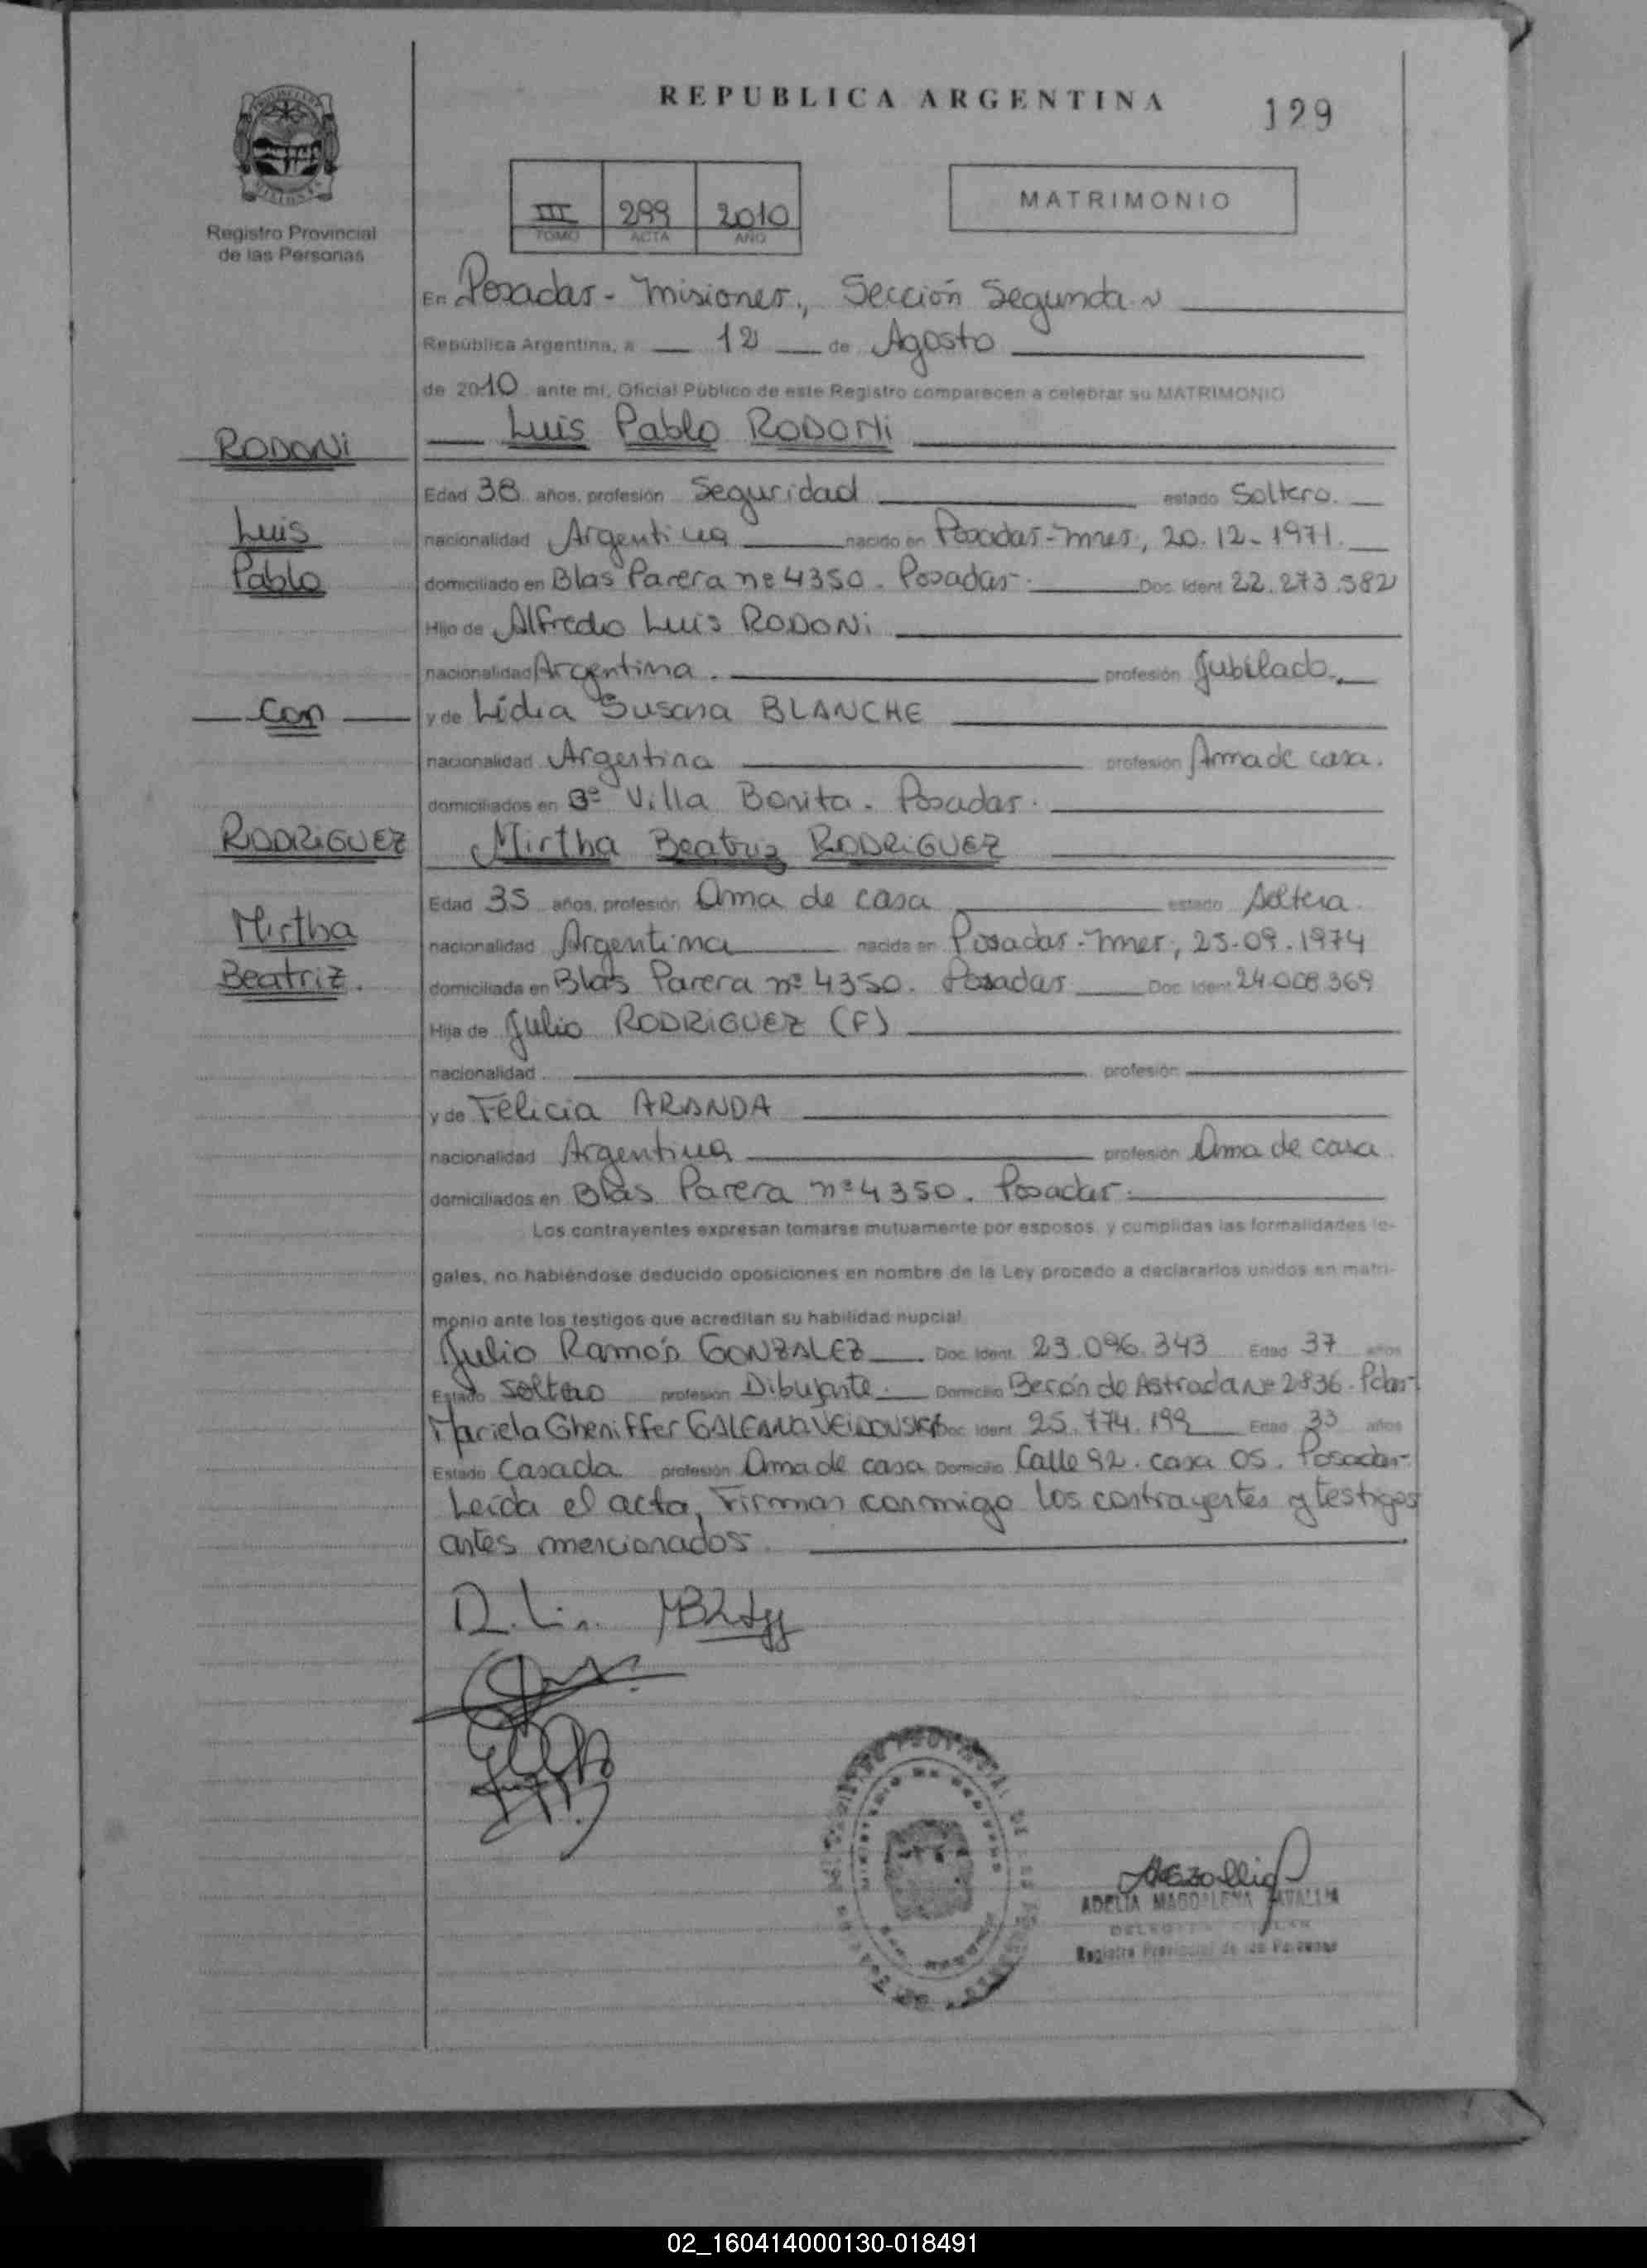 REPUBLICA ARGENTINA
129
Registro Provincial
de las Personas
III 299 2010
TOMO ACTA AÑO
MATRIMONIO
En Posadas - Misiones., Sección Segunda
República Argentina, a 12 de Agosto
de 2010 ante mí, Oficial Público de este Registro comparecen a celebrar su MATRIMONIO
RODONI
Luis Pablo RODONI
Edad 38 años, profesión Seguridad estado Soltero.
Luis
nacionalidad Argentina nacido en Posadas-Mnes, 20.12-1971.
Pablo
domiciliado en Blas Parera nº 4350. Posadas. Doc. Ident 22.273.582
Hijo de Alfredo Luis RODONI
nacionalidad Argentina. profesión Jubilado.
con
y de Lidia Susana BLANCHE
nacionalidad Argentina profesión Ama de casa.
domiciliados en Bº Villa Bonita. Posadas.
RODRIGUEZ
Mirtha Beatriz RODRIGUEZ
Edad 35 años, profesión Ama de casa estado Soltera.
Mirtha
nacionalidad Argentina nacida en Posadas-Mnes, 25-09-1974
Beatriz.
domiciliada en Blas Parera nº 4350. Posadas Doc. Ident 24.008.369
Hija de Julio RODRIGUEZ (F)
nacionalidad profesión
y de Felicia ARANDA
nacionalidad Argentina profesión Ama de casa
domiciliados en Blas Parera nº 4350. Posadas.
Los contrayentes expresan tomarse mutuamente por esposos, y cumplidas las formalidades le-
gales, no habiéndose deducido oposiciones en nombre de la Ley procedo a declararlos unidos en matri-
monio ante los testigos que acreditan su habilidad nupcial
Julio Ramón GONZALEZ Doc. Ident. 23.096.343 Edad 37 años
Estado soltero profesión Dibujante. Domicilio Berón de Astrada Nº 2836. Pdas-
Mariela Gheniffer Doc. Ident 25.774.199 Edad 33 años
Estado Casada profesión Ama de casa Domicilio Calle 92. casa 05. Posadas-
Leída el acta, Firman conmigo los contrayentes y testigos
antes mencionados.
ADELIA MAGDALENA
Registro Provincial de las Personas
02_160414000130-018491